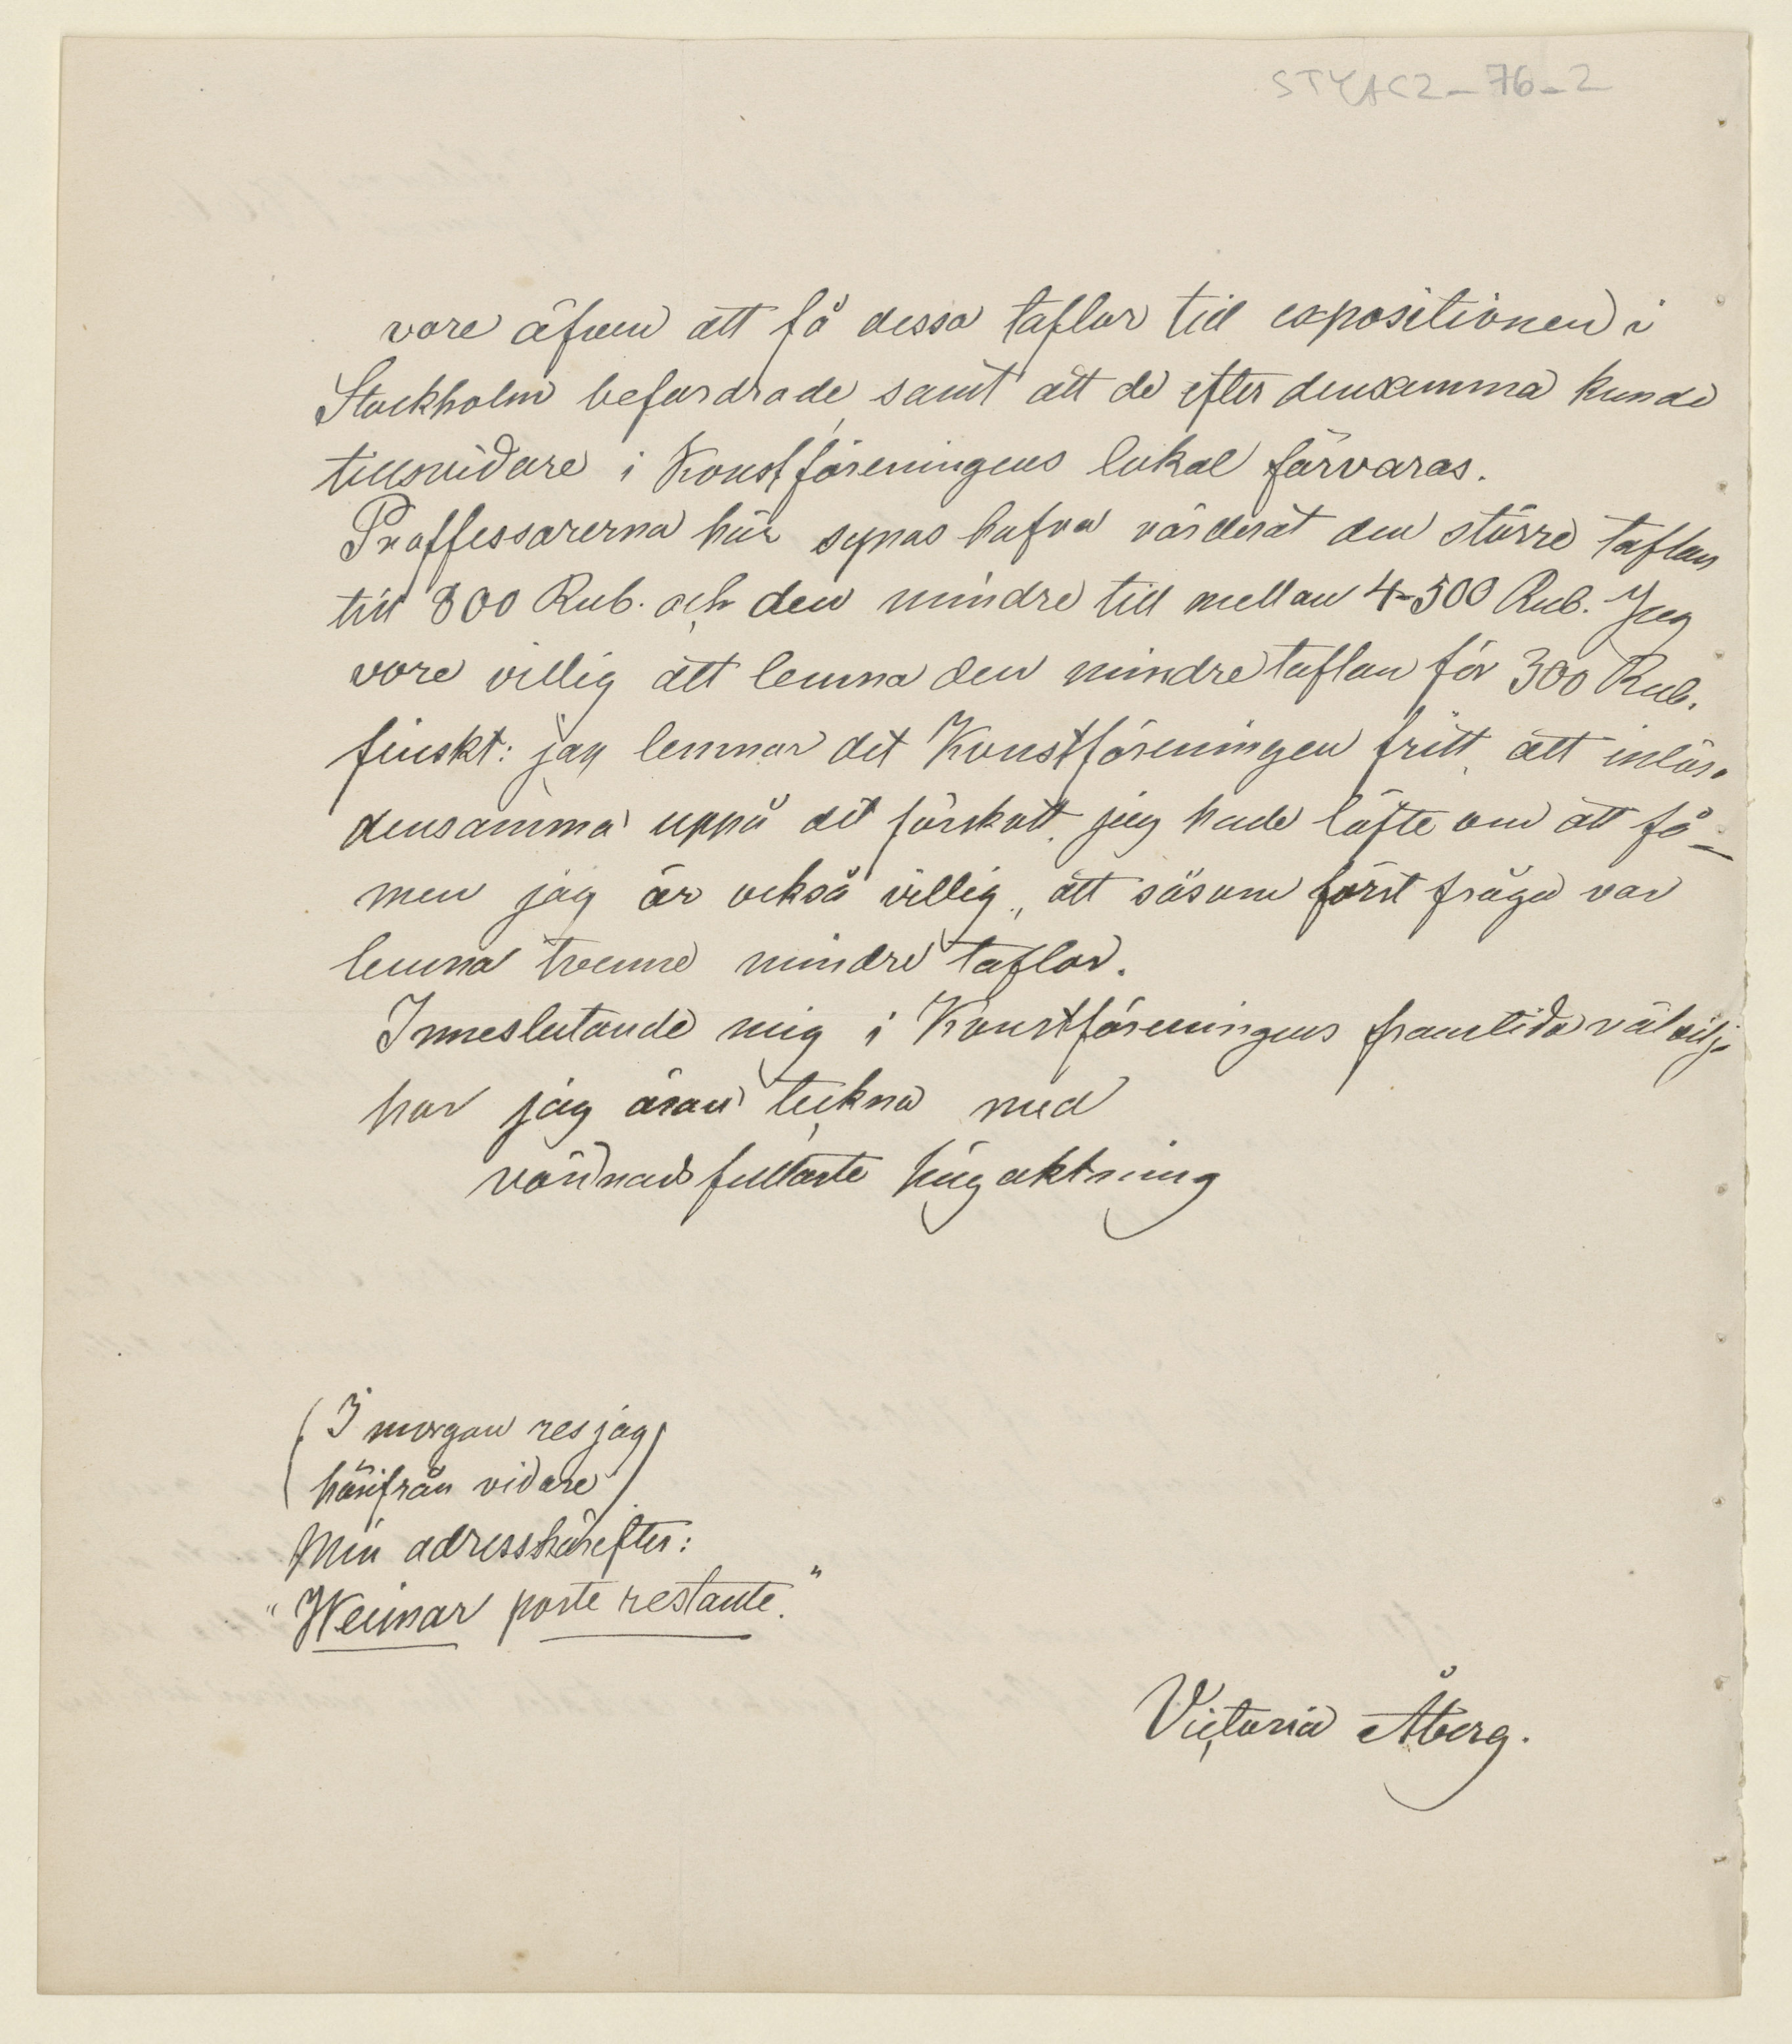 STYAC2-76-2
vore äfven att få dessa taflor till expositionen i
Stockholm befordrade, samt att de efter densamma kunde
tillsvidare i Konstföreningens lokal förvaras.
Proffessorerna här synas hafva värderat den större taflan
till 800 Rub. och den mindre till mellan 4-500 Rub. Jag
vore villig att lemna den mindre taflan för 300 Rub.
finskt: jag lemnar det Konstföreningen fritt, att inlösa
densamma uppå det förskott, jag hade löfte om att få –
men jag är också villig, att såsom först fråga var
lemna tvenne mindre taflor.
Inneslutande mig i Konstföreningens framtida välvilja
har jag äran teckna med
vördnadsfullaste högaktning
(I morgon res jag
härifrån vidare)
Min adress härefter:
"Weimar poste restante."
Victoria Åberg.